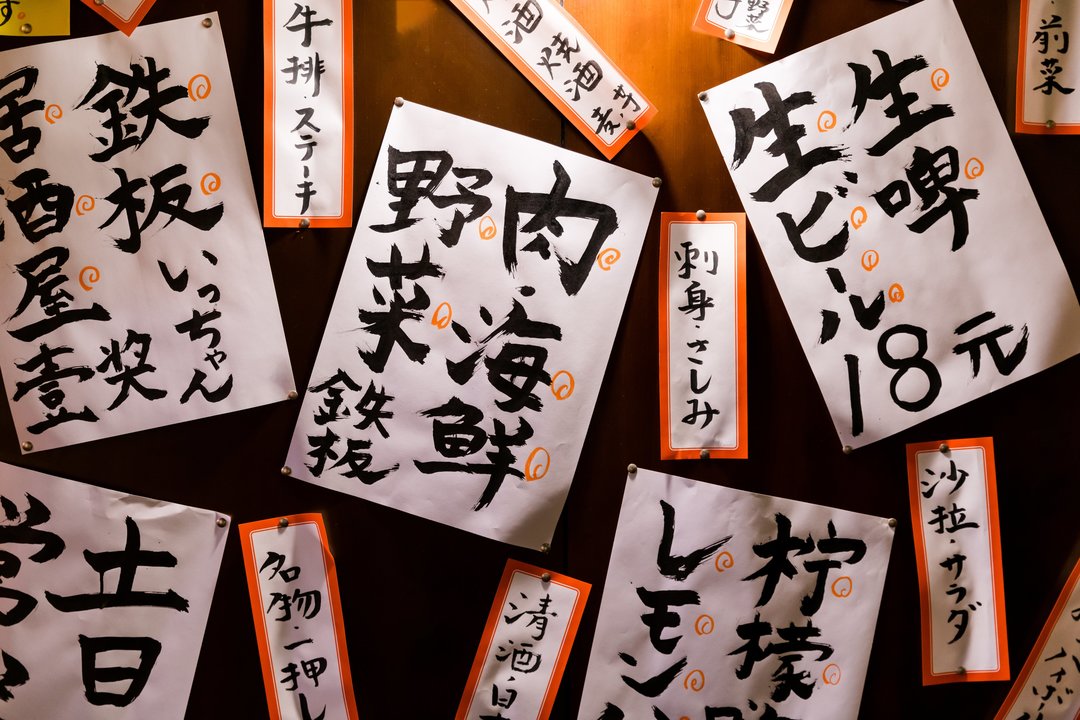 鉄板いっちゃん
居酒屋壹奖
牛排・ステーキ
酒・焼酒 麦・芋
野菜
前菜
肉・海鮮
野菜 鉄板
刺身・さしみ
生啤
生ビール
18元
土日
営
名物・一押し
清酒・日
柠檬
レモン
沙拉・サラダ
ハイボ
す。